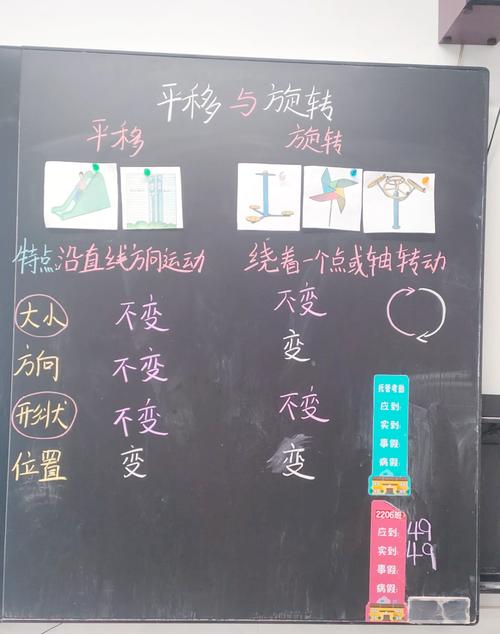 平移与旋转
平移 旋转
特点:沿直线方向运动 绕着一个点或轴转动
大小 不变 不变
方向 不变 变
形状 不变 不变
位置 变 变
托管考勤
应到:
实到:
事假:
病假:
2206班
应到: 49
实到: 49
事假:
病假: